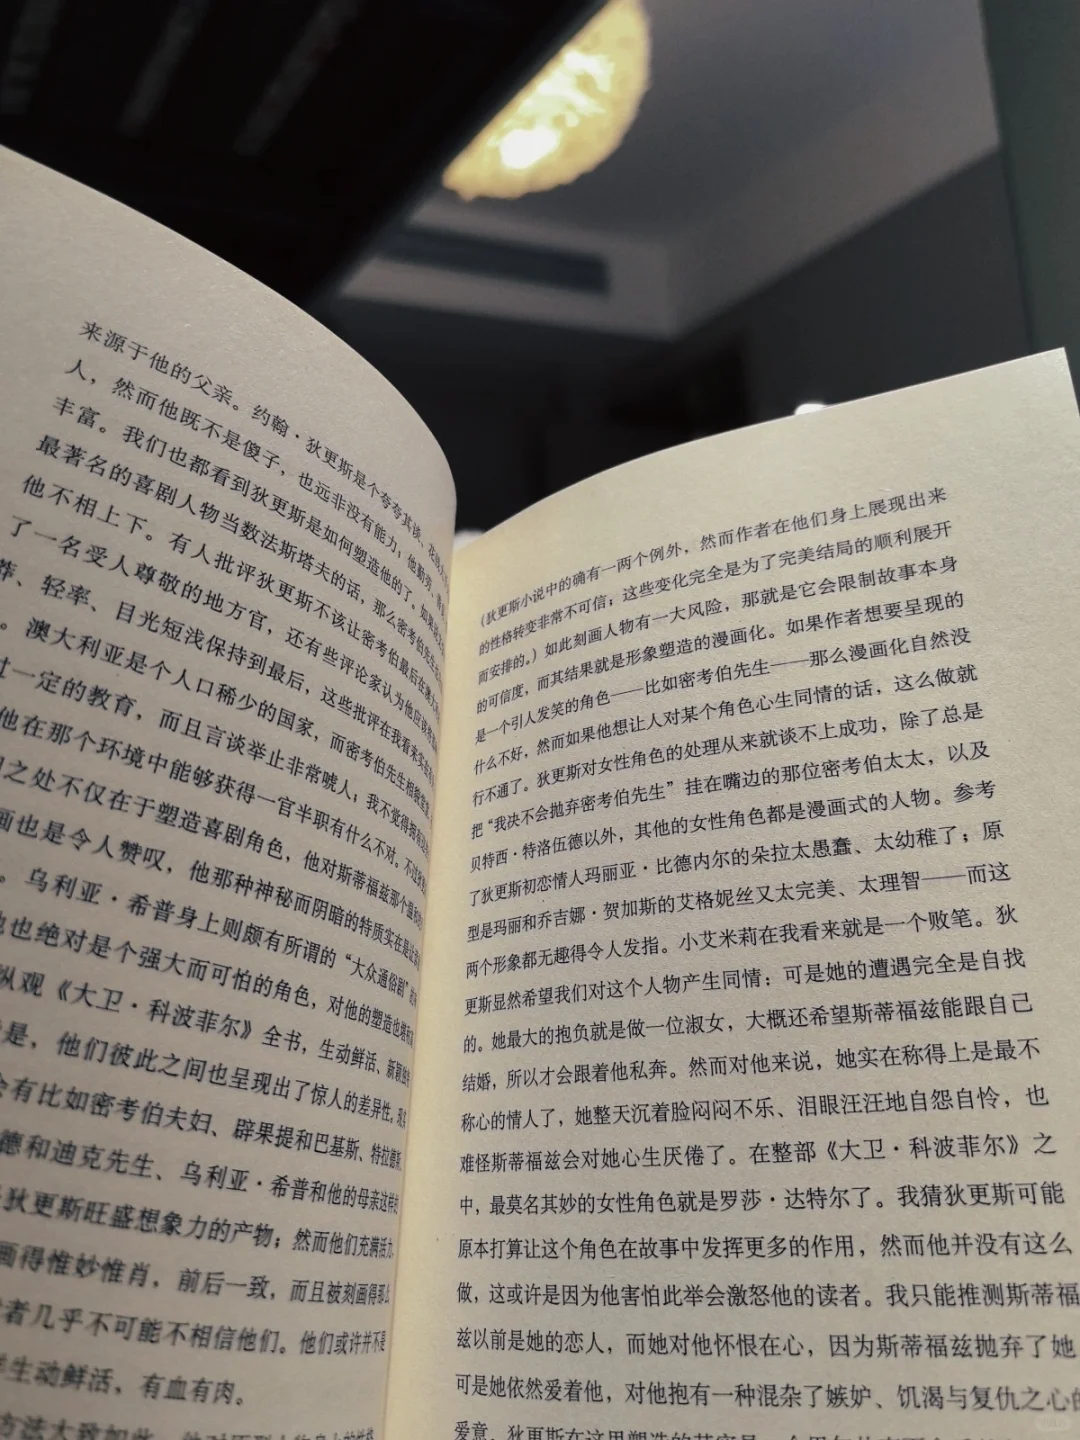 来源于他的父亲。约翰·狄更斯是个夸夸其谈、花
人，然而他既不是傻子，也远非没有能力；他勤劳、
丰富。我们也都看到狄更斯是如何塑造他的了。如果
最著名的喜剧人物当数法斯塔夫的话，那么密考伯先生
他不相上下。有人批评狄更斯不该让密考伯最后在澳
了一名受人尊敬的地方官，还有些评论家认为他应该
莽、轻率、目光短浅保持到最后，这些批评在我看来
。澳大利亚是个人口稀少的国家，而密考伯先生相貌
过一定的教育，而且言谈举止非常唬人；我不觉得
他在那个环境中能够获得一官半职有什么不对。不过
之处不仅在于塑造喜剧角色，他对斯蒂福兹那个
画也是令人赞叹，他那种神秘而阴暗的特质实在是
。乌利亚·希普身上则颇有所谓的“大众通俗剧”
他也绝对是个强大而可怕的角色，对他的塑造也
纵观《大卫·科波菲尔》全书，生动鲜活、新颖
是，他们彼此之间也呈现出了惊人的差异性。现
会有比如密考伯夫妇、辟果提和巴基斯、特拉德
德和迪克先生、乌利亚·希普和他的母亲这样
狄更斯旺盛想象力的产物；然而他们充满活力、
画得惟妙惟肖，前后一致，而且被刻画得那么
者几乎不可能不相信他们。他们或许并不是
生动鲜活，有血有肉。
方法大致如此，他对原型人物身上的性格
（狄更斯小说中的确有一两个例外，然而作者在他们身上展现出来
的性格转变非常不可信；这些变化完全是为了完美结局的顺利展开
而安排的。）如此刻画人物有一大风险，那就是它会限制故事本身
的可信度，而其结果就是形象塑造的漫画化。如果作者想要呈现的
是一个引人发笑的角色——比如密考伯先生——那么漫画化自然没
什么不好，然而如果他想让人对某个角色心生同情的话，这么做就
行不通了。狄更斯对女性角色的处理从来就谈不上成功，除了总是
把“我决不会抛弃密考伯先生”挂在嘴边的那位密考伯太太，以及
贝特西·特洛伍德以外，其他的女性角色都是漫画式的人物。参考
了狄更斯初恋情人玛丽亚·比德内尔的朵拉太愚蠢、太幼稚了；原
型是玛丽和乔吉娜·贺加斯的艾格妮丝又太完美、太理智——而这
两个形象都无趣得令人发指。小艾米莉在我看来就是一个败笔。狄
更斯显然希望我们对这个人物产生同情；可是她的遭遇完全是自找
的。她最大的抱负就是做一位淑女，大概还希望斯蒂福兹能跟自己
结婚，所以才会跟着他私奔。然而对他来说，她实在称得上是最不
称心的情人了，她整天沉着脸闷闷不乐、泪眼汪汪地自怨自怜，也
难怪斯蒂福兹会对她心生厌倦了。在整部《大卫·科波菲尔》之
中，最莫名其妙的女性角色就是罗莎·达特尔了。我猜狄更斯可能
原本打算让这个角色在故事中发挥更多的作用，然而他并没有这么
做，这或许是因为他害怕此举会激怒他的读者。我只能推测斯蒂福
兹以前是她的恋人，而她对他怀恨在心，因为斯蒂福兹抛弃了她
可是她依然爱着他，对他抱有一种混杂了嫉妒、饥渴与复仇之心的
爱意。狄更斯在这里塑造的